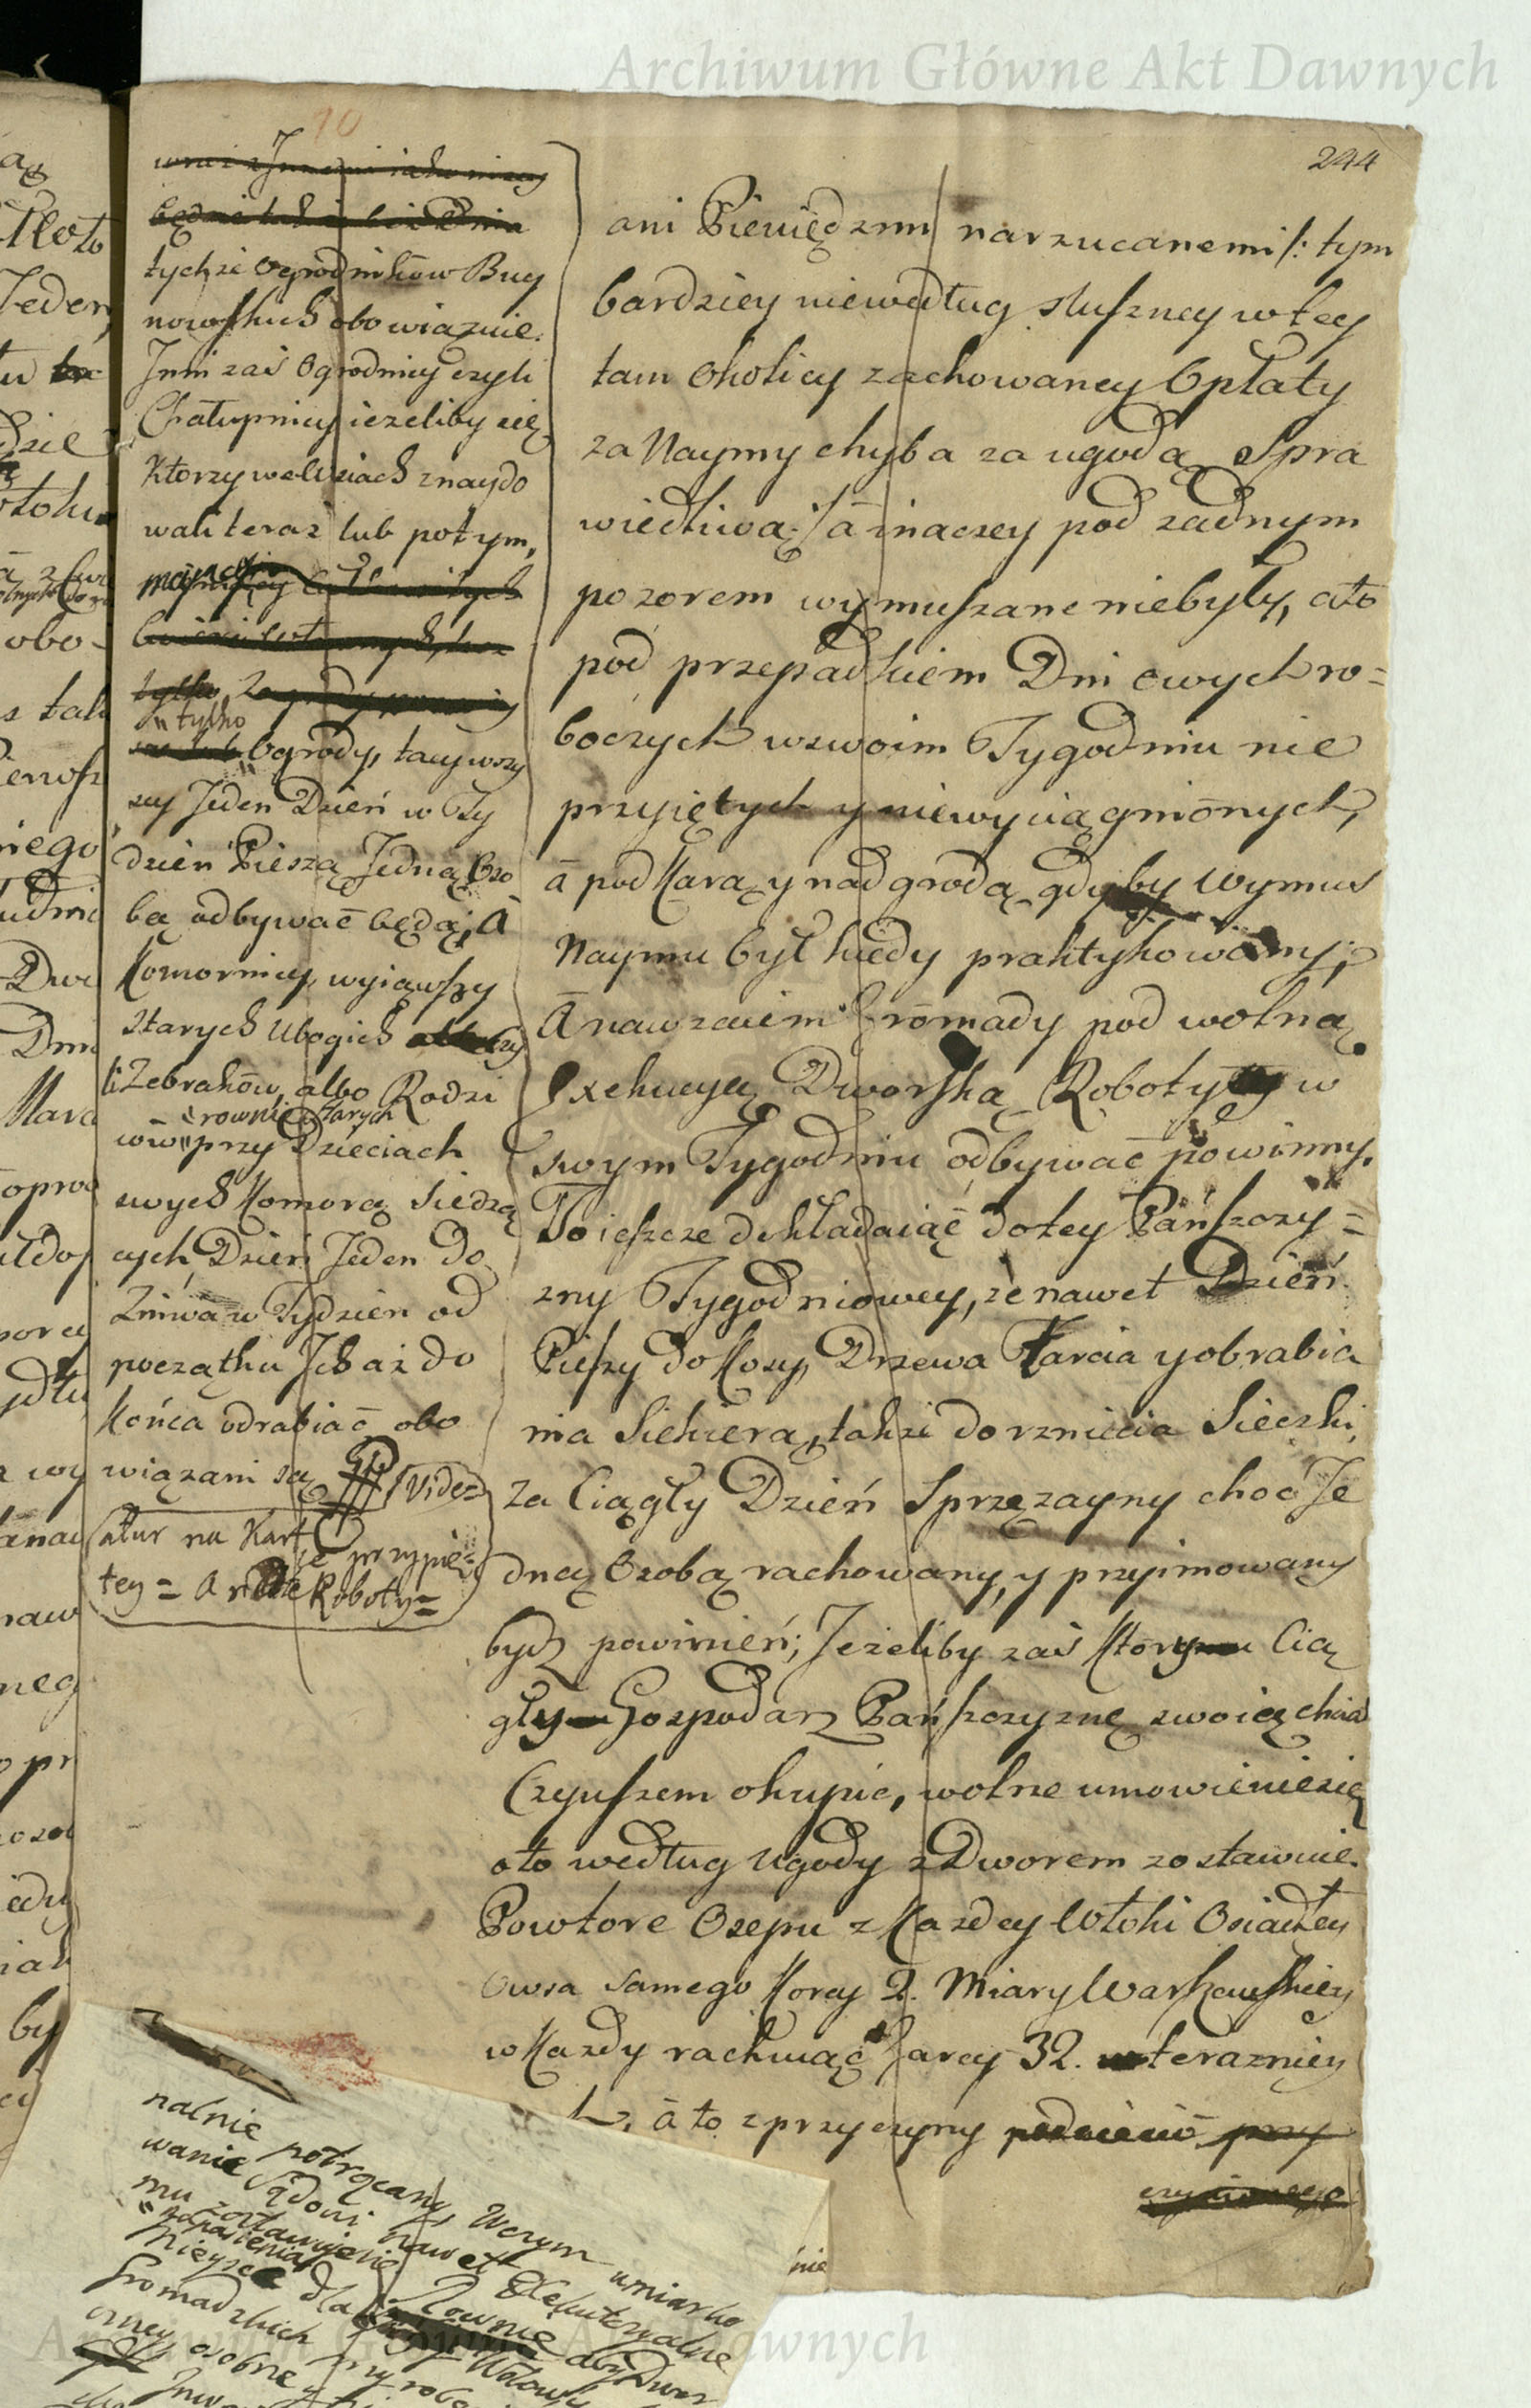 Archiwum Główne Akt Dawnych
10
244
tychże Ogrodników Buy
nowskich obowiązuie.
Inni zaś Ogrodnicy czyli
Chałupnicy ieżeliby się
Ktorzy we Wsiach znaydo
wali teraz lub potym,
maiących
tylko
"tylko
Ogrody, tacy wszy
scy Jeden Dzień w Ty
dzień Pieszą Jedną Oso
bą odbywać będą; A
Komornicy, wyiąwszy
starych Ubogich czy
li Żebraków, albo Rodzi
"rownie starych
ców "przy Dzieciach
swych Komorą siedzą
cych Dzień Jeden do
Żniwa w Tydzień od
początku Jch aż do
Końca odrabiać obo
wiązani są Vide
na Kart
ce przypię
tey = Roboty =
ani Pieniędzmi narzucanemi /: tym
bardziey niewedług słuszney w tey
tam Okolicy zachowaney Opłaty
za Naymy chyba za ugodą Spra
wiedliwą :/ ā inaczey pod żadnym
pozorem wymuszane niebyły, ato
pod przepadkiem Dni owych ro=
boczych w swoim Tygodniu nie
przyiętych y niewyciągnionych,
ā pod Karą y nadgrodą gdyby wymus
Naymu był kiedy praktykowany;
Ā nawzaiem Gromady pod wolną
Exekucyą Dworską Roboty w
swym Tygodniu odbywać powinny.
To ieszcze dokładaiąc do tey Pańszczy=
zny Tygodniowey, że nawet Dzień
Pieszy do Kosy, Drzewa Tarcia y obrabia
nia Siekierą, także do rznięcia Sieczki
za Ciągły Dzień Sprzężayny choć Je
dną Osobą rachowany, y przyimowany
bydź powinień; Jeżeliby zaś Ktory Cią
gły Gospodarz Pańszczyznę swoią chciał
Czynszem okupić, wolne umowienie się
oto według Ugody z Dworem zostawuie.
Powtore Osepu z Każdey Włoki Osiadłey
Owsa samego Korcy 2. Miary Warszawskiey
w Każdy rachuiąc Garcy 32. terazniey
ā to z przyczyny
nie
nalnie potrącany, W czym umiarko
wanie Sądowi nawet Exekutoryalne
mu zostawuie się Rownie aby Dwor
"do pasienia
Mieysce dla Wołow
Gromadzkich przy robo
Archiwum Główne Akt Dawnych